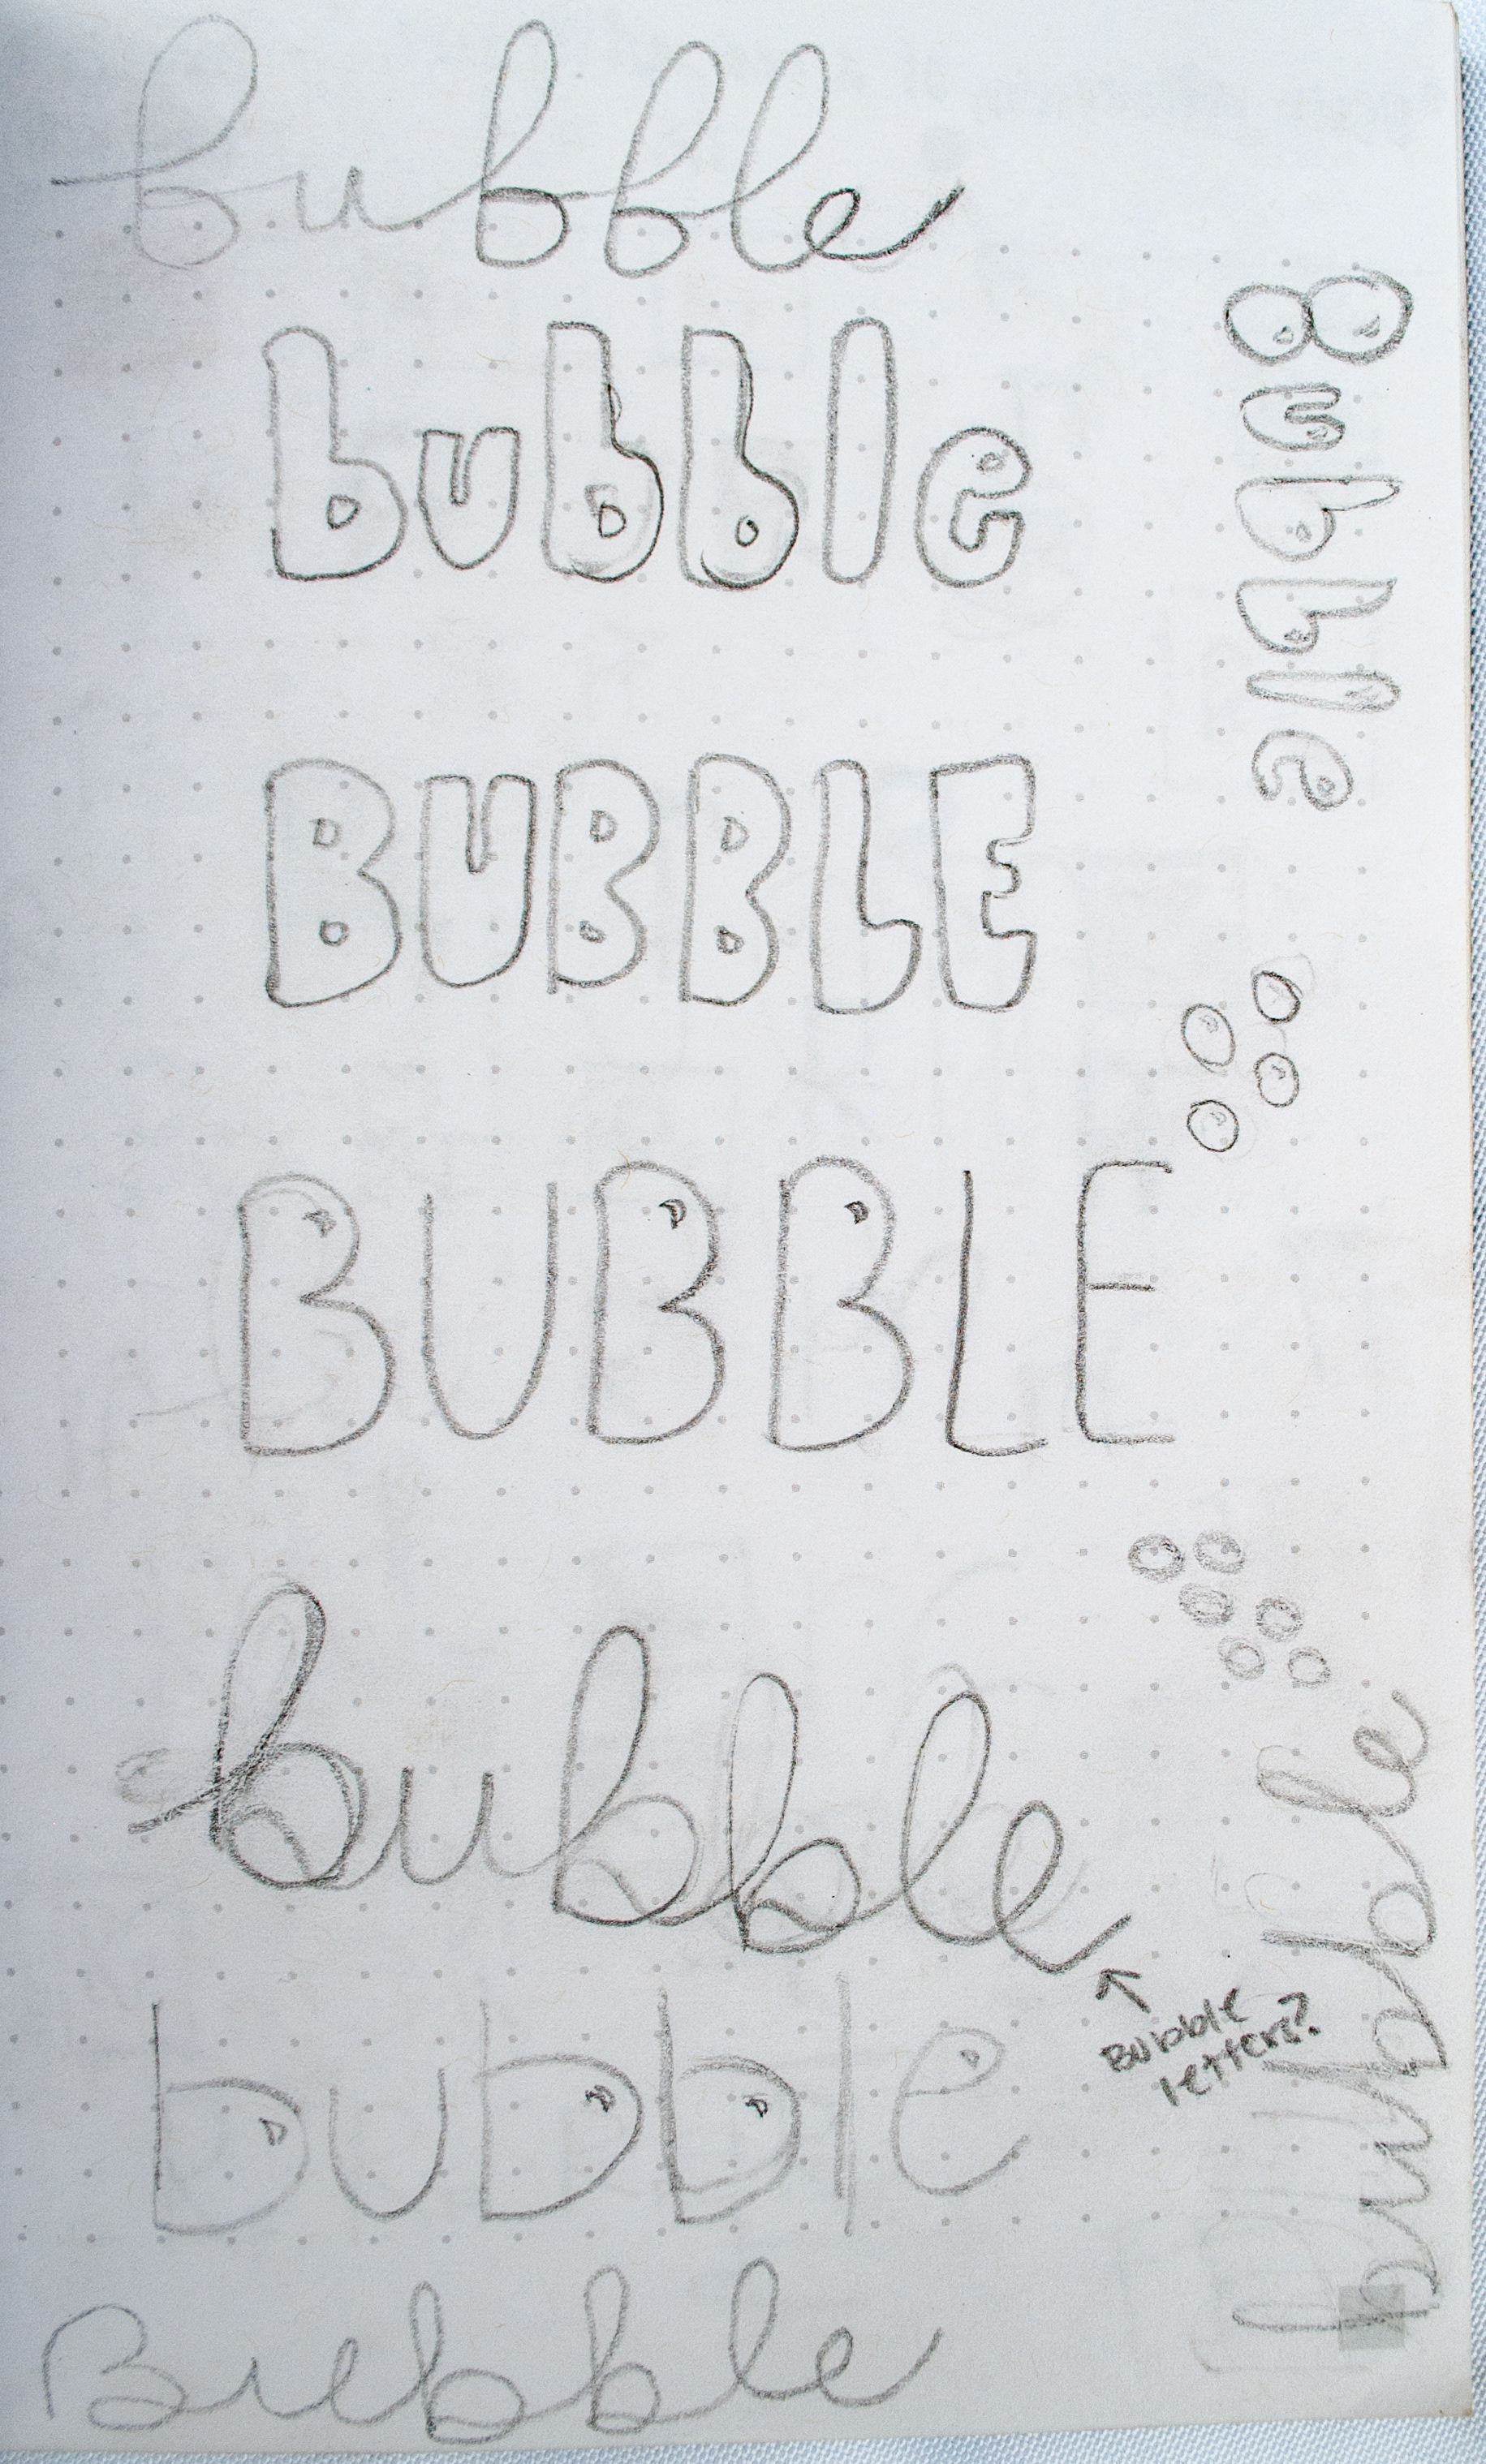 bubble
bubble
Bubble
BUBBLE
BUBBLE
bubble
Bubble
letters?
bubble
bubble
Bubble